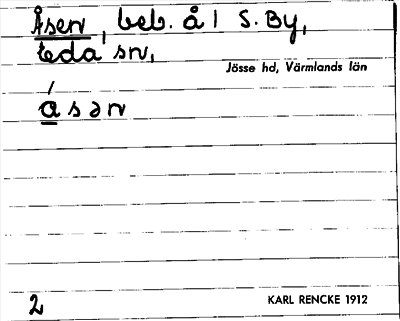 Åsen, beb. å 1 S. By,
Eda sn,
Jösse hd, Värmlands län
ásən
2
KARL RENCKE 1912